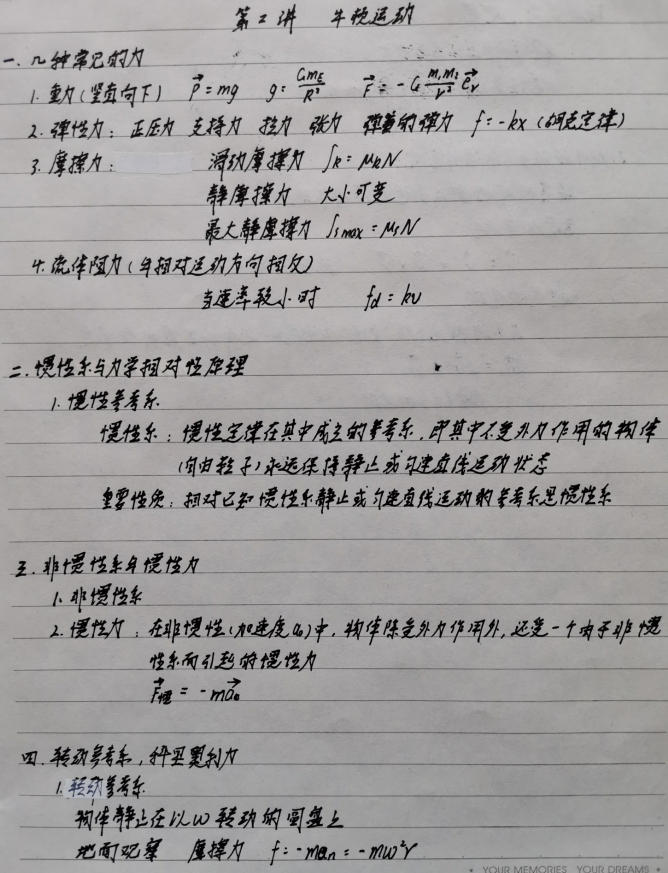 第2讲 牛顿运动
一.几种常见的力
1.重力(竖直向下) P⃗=mg g=GmE/R² F⃗=-G m₁m₂/r² e⃗r
2.弹性力:正压力 支持力 拉力 张力 弹簧的弹力 f=-kx(胡克定律)
3.摩擦力: 滑动摩擦力 fk=μkN
静摩擦力 大小可变
最大静摩擦力 fsmax=μsN
4.流体阻力(与相对运动方向相反)
当速率较小时 fd=kv
二.惯性系与力学相对性原理
1.惯性参考系
惯性系:惯性定律在其中成立的参考系,即其中不受外力作用的物体
(自由粒子)永远保持静止或匀速直线运动状态
重要性质:相对已知惯性系静止或匀速直线运动的参考系是惯性系
三.非惯性系与惯性力
1.非惯性系
2.惯性力:在非惯性(加速度a₀)中,物体除受外力作用外,还受一个由于非惯
性系而引起的惯性力
F⃗惯=-ma⃗₀
四.转动参考系,科里奥利力
1.转动参考系
物体静止在以ω转动的圆盘上
地面观察 摩擦力 f=-man=-mω²r
YOUR MEMORIES YOUR DREAMS